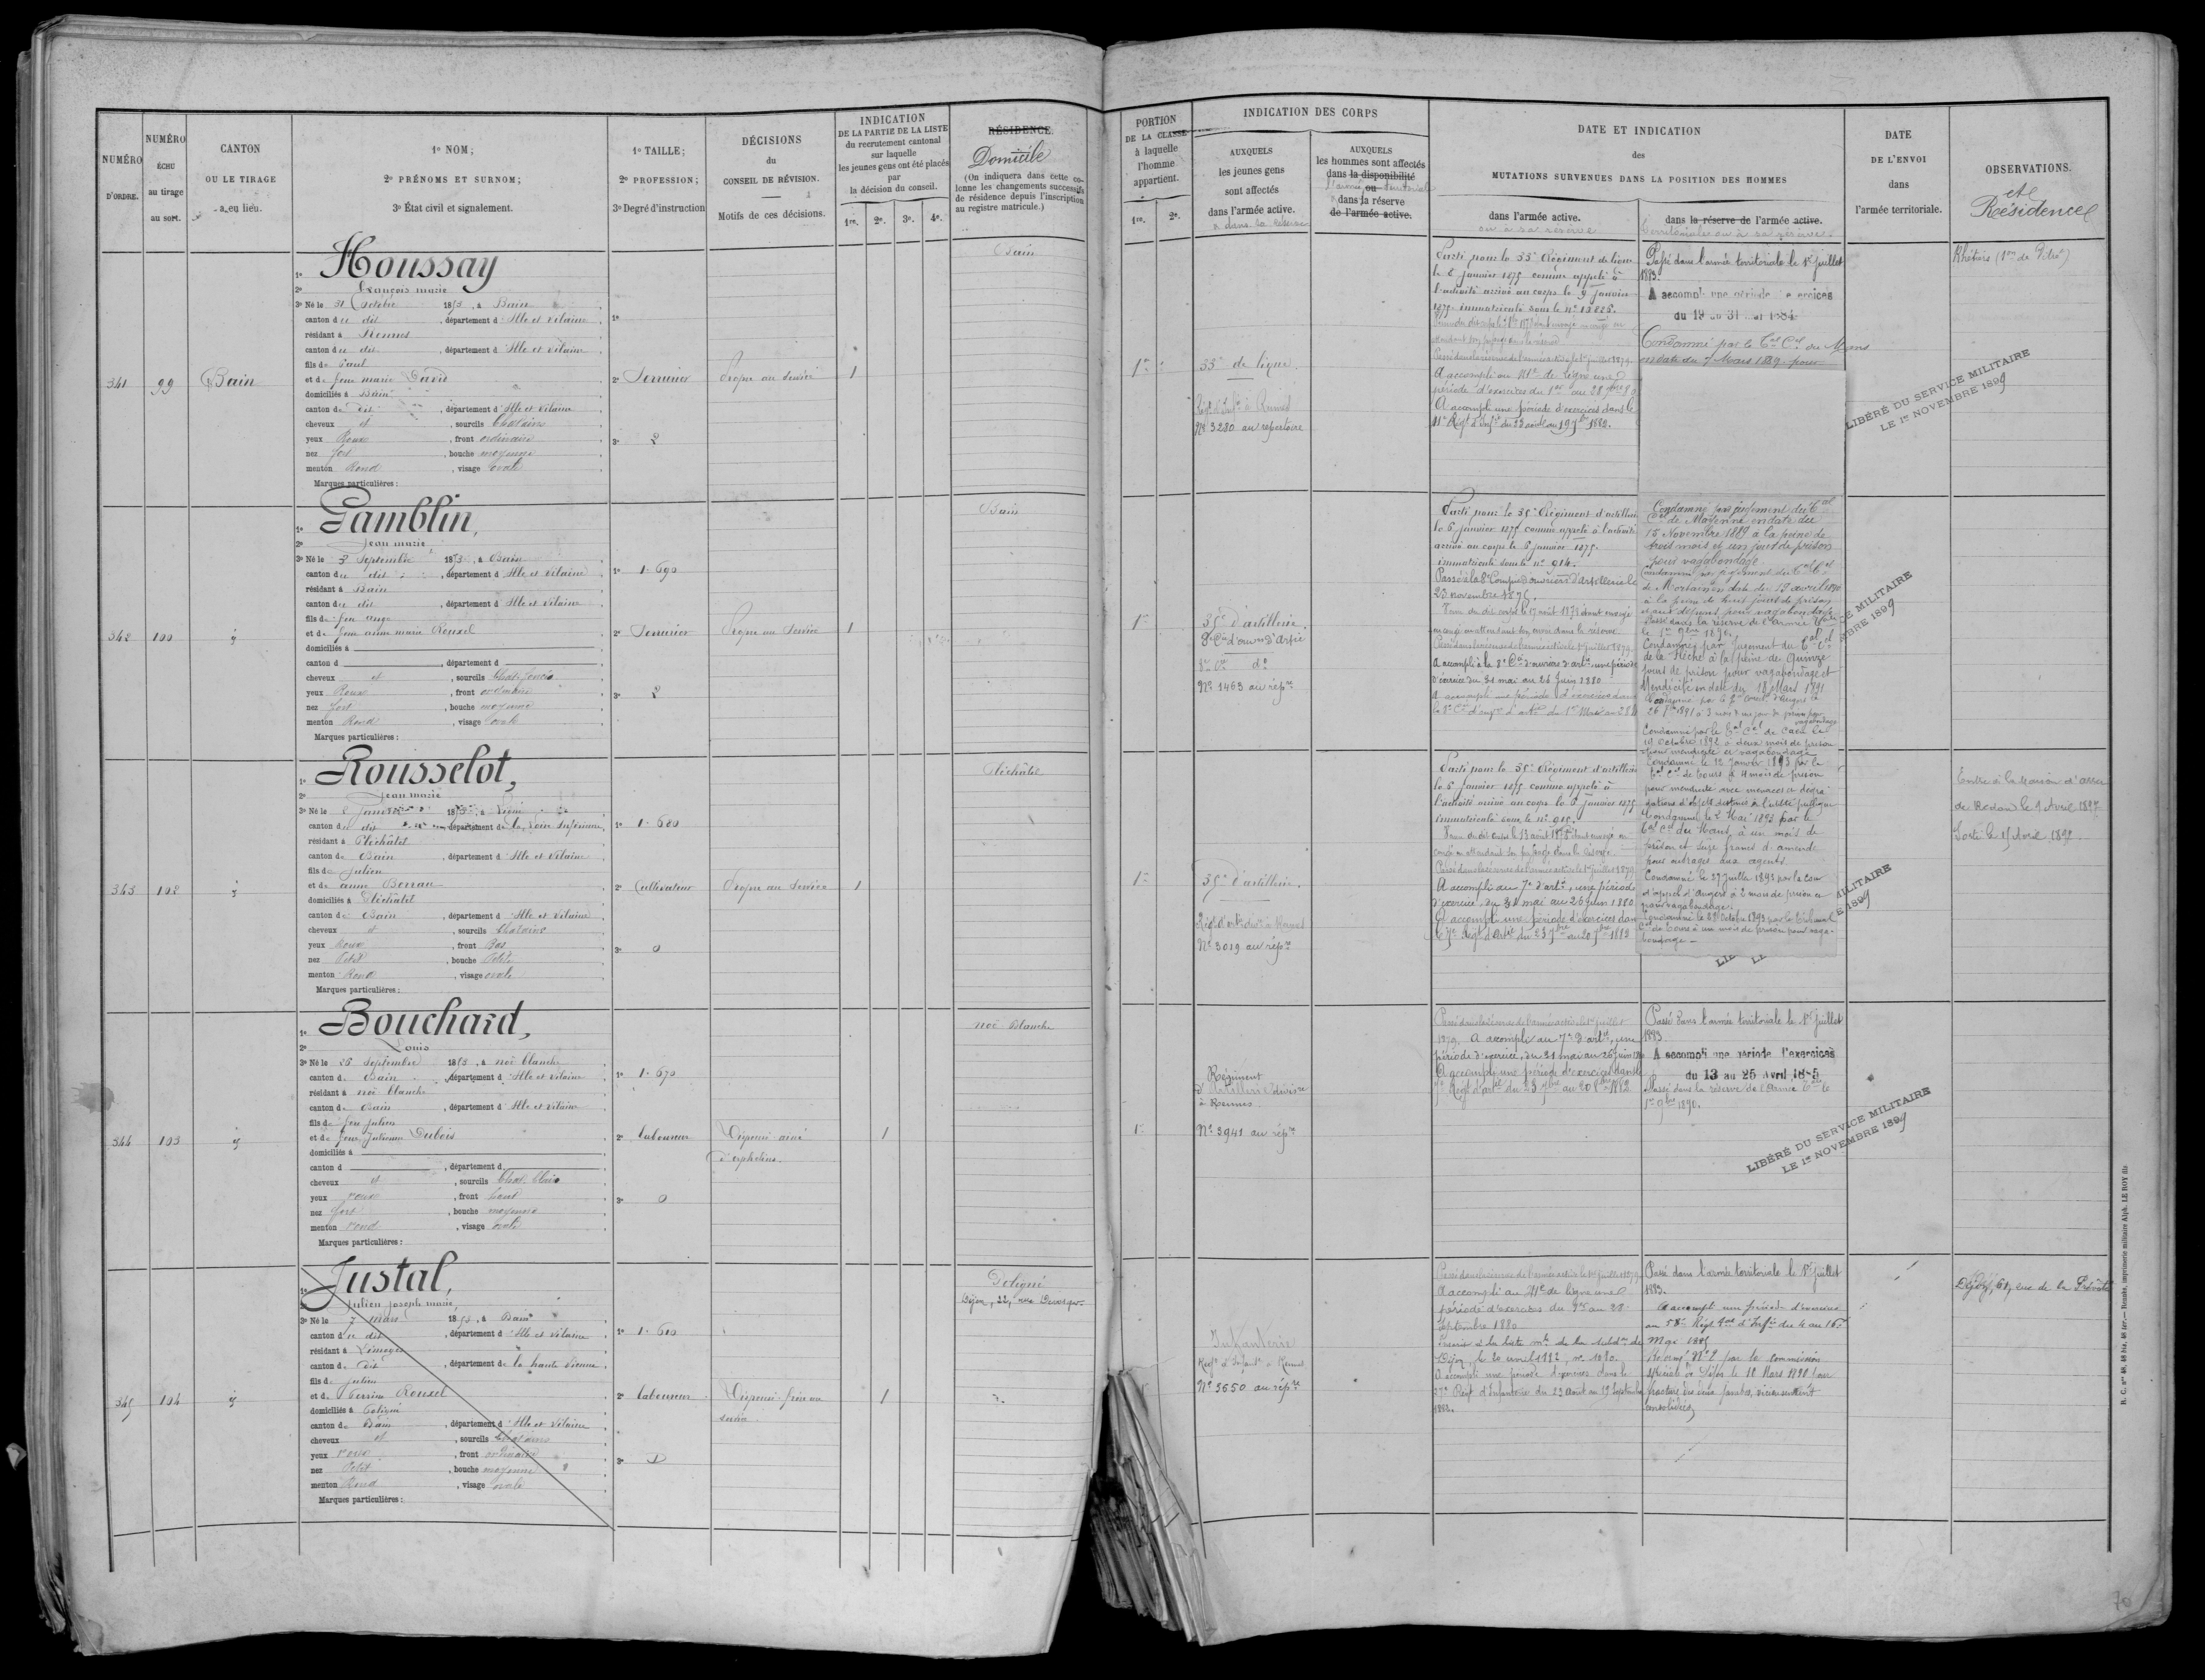 NUMÉRO
D'ORDRE.
NUMÉRO
ÉCHU
au tirage
au sort.
CANTON
OU LE TIRAGE
a eu lieu.
1º NOM;
2º PRÉNOMS ET SURNOM;
3º État civil et signalement.
1º TAILLE;
2º PROFESSION;
3º Degré d'instruction
DÉCISIONS
du
CONSEIL DE RÉVISION.
Motifs de ces décisions.
INDICATION
DE LA PARTIE DE LA LISTE
du recrutement cantonal
sur laquelle
les jeunes gens ont été placés
par
la décision du conseil.
1re. 2e. 3e. 4e.
RÉSIDENCE.
Domicile
(On indiquera dans cette co-
lonne les changements successifs
de résidence depuis l'inscription
au registre matricule.)
341
99
Bain
1º Houssay
2º François marie
3º Né le 31 Octobre 1853, à Bain
canton du dit, département d'Ille et Vilaine
résidant à Rennes
canton du dit, département d'Ille et Vilaine
fils de Paul
et de feue marie David
domiciliés à Bain
canton du dit, département d'Ille et Vilaine
cheveux et, sourcils Chatains
yeux Roux, front ordinaire
nez fort, bouche moyenne
menton Rond, visage ovale
Marques particulières :
1º
2º Serrurier
3º 2
Propre au Service
1
Bain
342
100
1º Gamblin,
2º Jean marie
3º Né le 3 Septembre 1853, à Bain
canton du dit, département d'Ille et Vilaine
résidant à Bain
canton du dit, département d'Ille et Vilaine
fils de feu ange
et de feue anne marie Rouxel
domiciliés à
canton d , département d
cheveux et, sourcils Chat. foncés
yeux Roux, front ordinaire
nez fort, bouche moyenne
menton Rond, visage ovale
Marques particulières :
1º 1.690
2º Serrurier
3º 2
Propre au Service
1
Bain
343
102
1º Rousselot,
2º Jean marie
3º Né le 2 Janvier
canton du dit, département de la Loire Inférieure
résidant à Pléchâtel
canton de Bain, département d'Ille et Vilaine
fils de Julien
et de anne
domiciliés à Pléchâtel
canton de Bain, département d'Ille et Vilaine
cheveux et, sourcils Chatains
yeux Roux, front Bas
nez Petit, bouche Petite
menton Rond, visage ovale
Marques particulières :
1º 1.680
2º Cultivateur
3º 0
Propre au Service
1
Pléchâtel
344
103
1º Bouchard,
2º Louis
3º Né le 26 Septembre 1853, à noë blanche
canton de Bain, département d'Ille et Vilaine
résidant à noë blanche
canton de Bain, département d'Ille et Vilaine
fils de feu Julien
et de feue Julienne Dubois
domiciliés à
canton d , département d
cheveux et, sourcils Chat. Clairs
yeux roux, front haut
nez fort, bouche moyenne
menton rond, visage ovale
Marques particulières :
1º 1.670
2º Laboureur
3º 0
Dispensé ainé
d'orphelins
1
noë Blanche
345
104
1º Justal,
2º Julien Joseph marie
3º Né le 7 mars 1853, à Bain
canton du dit, département d'Ille et Vilaine
résidant à Limoges
canton du dit, département de la haute Vienne
fils de Julien
et de Perrine Rouxel
domiciliés à Poligné
canton de Bain, département d'Ille et Vilaine
cheveux et, sourcils Chatains
yeux roux, front ordinaire
nez Petit, bouche moyenne
menton Rond, visage ovale
Marques particulières :
1º 1.610
2º Laboureur
3º D
Dispensé frère au
Service
1
Poligné
Dijon, 22, rue
PORTION
DE LA CLASSE
à laquelle
l'homme
appartient.
1re. 2e.
INDICATION DES CORPS
AUXQUELS
les jeunes gens
sont affectés
dans l'armée active.
ou dans la réserve
AUXQUELS
les hommes sont affectés
dans la disponibilité
l'armée ou territoriale
dans la réserve
de l'armée active.
DATE ET INDICATION
des
MUTATIONS SURVENUES DANS LA POSITION DES HOMMES
dans l'armée active.
ou à sa réserve
dans la réserve de l'armée active.
territoriale ou à sa réserve.
DATE
DE L'ENVOI
dans
l'armée territoriale.
OBSERVATIONS.
et
Résidence
1re
33e de ligne.
Régt d'Infie à Rennes
Nº 3280 au répertoire
Parti pour le 33e Régiment de ligne
le 8 janvier 1875 comme appelé à
l'activité arrivé au corps le 9 Janvier
1875 immatriculé sous le nº
Passé dans la réserve de l'armée active le 1er juillet 1879.
A accompli au 41e de Ligne une
période d'exercices du 1er au 28 7bre 80
A accompli une période d'exercices dans le
41e Régt d'Infie du 23 août au 19 7bre 1882.
Passé dans l'armée territoriale le 1er Juillet
1883.
A accompli une période d'exercices
du 19 au 31 mai 1884
Condamné par le Cal Cel du Mans
en date du 7 Mars 1889 pour
LIBÉRÉ DU SERVICE MILITAIRE
LE 1er NOVEMBRE 1899
1re
35e d'artillerie.
8e Cie d'ouvrs d'Artie
8e Cie dº
Nº 1463 au réprе
Parti pour le 35e Régiment d'artillerie
le 6 janvier 1875 comme appelé à l'activité
arrivé au corps le 8 janvier 1875.
immatriculé sous le nº 914.
Passé à la 8e Compie d'ouvriers d'Artillerie le
23 novembre 1875.
Passé dans la réserve de l'armée active le 1er juillet 1879.
A accompli à la 8e Cie d'ouvriers d'artie une période
d'exercice du 31 mai au 26 Juin 1880
Condamné par jugement du Cal
Cel de Mayenne en date du
15 Novembre 1889 à la peine de
trois mois et un jour de prison
pour vagabondage.
Condamné par jugement du Cal Cel
de Mortain en date du 19 avril 1890
à la peine de huit jours de prison
et aux dépens pour vagabondage
Passé dans la réserve de l'armée Tle
le 1er 9bre 1890.
Condamné par jugement du Cal Cel
de la Flèche à la peine de Quinze
jours de prison pour vagabondage et
Mendicité en date du 18 Mars 1891
Condamné par le Cal Cel de Caen le
19 Octobre 1892 à deux mois de prison
pour mendicité et vagabondage
Condamné le 12 Janvier 1893 par le
Cal Cel de Tours à 4 mois de prison
pour mendicité avec menaces et dégra-
dations d'objets destinés à l'utilité publique
Condamné le 2 Mai 1893 par le
Cal Cel du Mans, à un mois de
prison et seize francs d'amende
pour outrages aux agents.
Condamné le 27 juillet 1893 par la cour
d'appel d'Angers à 2 mois de prison
pour vagabondage.
Condamné le 28 Octobre 1893 par le Tribunal
Cel de Tours à un mois de prison pour vaga-
bondage
1re
35e d'artillerie.
Régt d'artie divre à Rennes
Nº 3019 au répre
Parti pour le 35e Régiment d'artillerie
le 6 Janvier 1875 comme appelé à
l'activité arrivé au corps le 8 janvier 1875
immatriculé sous le nº 915.
Passé dans la réserve de l'armée active le 1er juillet 1879
A accompli au 7e d'artie, une période
d'exercice, du 31 mai au 26 juin 1880
A accompli une période d'exercices dans
le 7e Régt d'Artie du 23 7bre au 20 8bre 1882
Entré à la Maison d'Arrêt
de Redon le 9 Avril 1897
Sorti le 15 Avril 1897
1re
Régiment
d'Artillerie divisre
à Rennes
Nº 3941 au répre
Passé dans la réserve de l'armée active le 1er juillet
1879. A accompli au 7e d'artie, une
période d'exercice, du 31 mai au 26 juin 1880
A accompli une période d'exercices dans le
7e Régt d'artie du 23 7bre au 20 8bre 1882
Passé dans l'armée territoriale le 1er Juillet
1883.
A accompli une période d'exercices
du 13 au 25 Avril 1885
Passé dans la réserve de l'Armée Tle le
1er 9bre 1890.
LIBÉRÉ DU SERVICE MILITAIRE
LE 1er NOVEMBRE 1899
Infanterie
Régt d'Infie à Rennes
Nº 3650 au répre
Passé dans la réserve de l'armée active le 1er juillet 1879
A accompli au 41e de ligne une
période d'exercices du 1er au 28
Septembre 1880
Dijon, le 20 avril 1882, nº 1080.
A accompli une période d'exercices dans le
27e Régt d'Infanterie du 23 Août au 19 Septembre
1882.
Passé dans l'armée territoriale le 1er Juillet
1883.
A accompli une période d'exercices
au 58e Régt Tal d'Infie du 4 au 16
Mai 1885
Réformé Nº 2 par la commission
spéciale de Dijon le 18 Mars 1891 pour
fracture des deux jambes, vicieusement
consolidées
Dijon, 61, rue de la Prévôté
R. C. nos 46, 46 bis, 46 ter.— Rennes, imprimerie militaire Alph. LE ROY fils
70